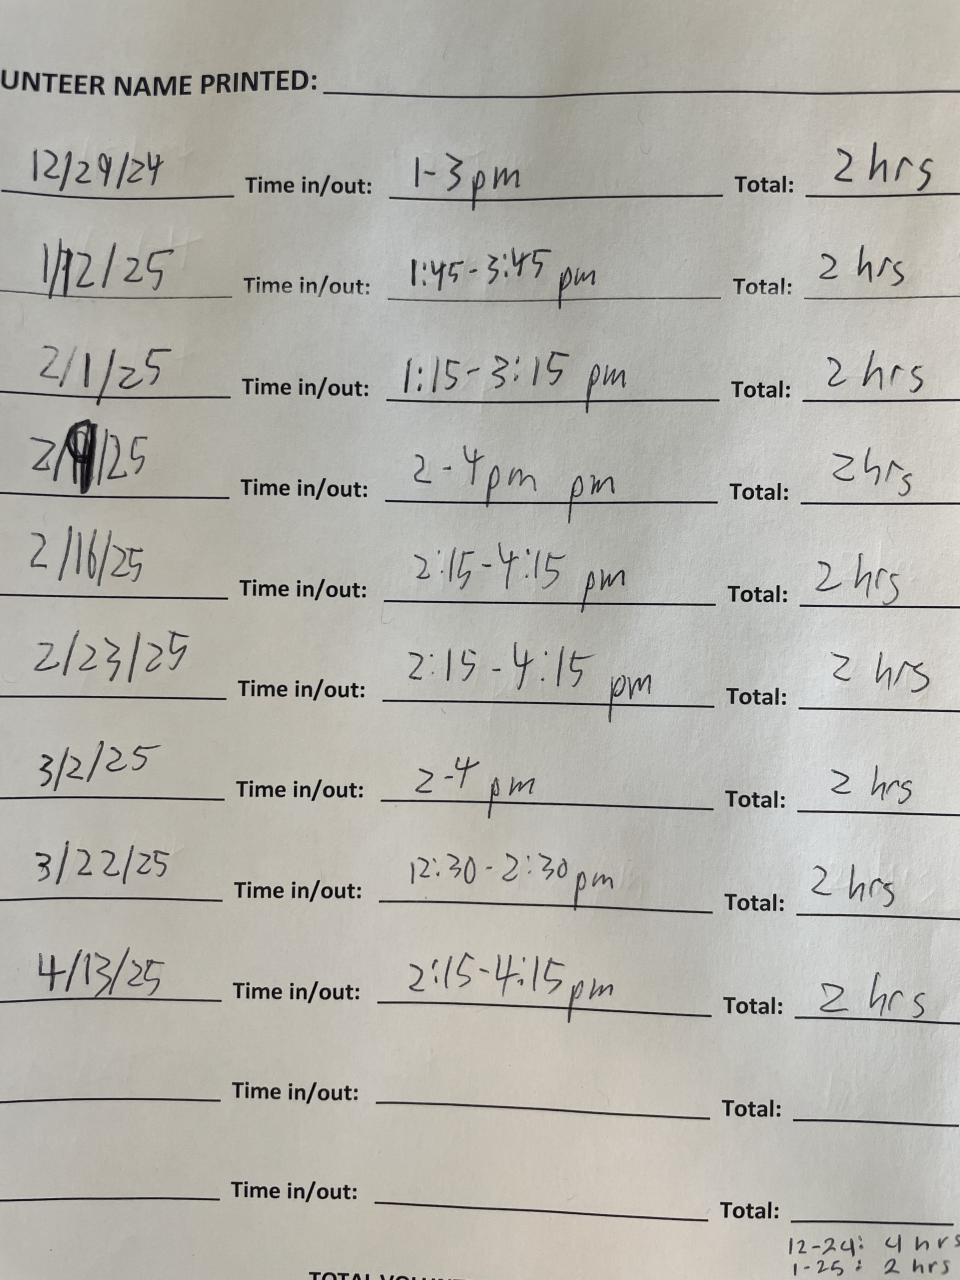 UNTEER NAME PRINTED:
12/29/24 Time in/out: 1-3pm Total: 2 hrs
1/12/25 Time in/out: 1:45-3:45 pm Total: 2 hrs
2/1/25 Time in/out: 1:15-3:15 pm Total: 2 hrs
2/9/25 Time in/out: 2-4pm pm Total: 2hrs
2/16/25 Time in/out: 2:15-4:15 pm Total: 2 hrs
2/23/25 Time in/out: 2:15-4:15 pm Total: 2 hrs
3/2/25 Time in/out: 2-4 pm Total: 2 hrs
3/22/25 Time in/out: 12:30-2:30pm Total: 2 hrs
4/13/25 Time in/out: 2:15-4:15pm Total: 2 hrs
Time in/out: Total:
Time in/out: Total:
12-24: 4 hrs
1-25: 2 hrs